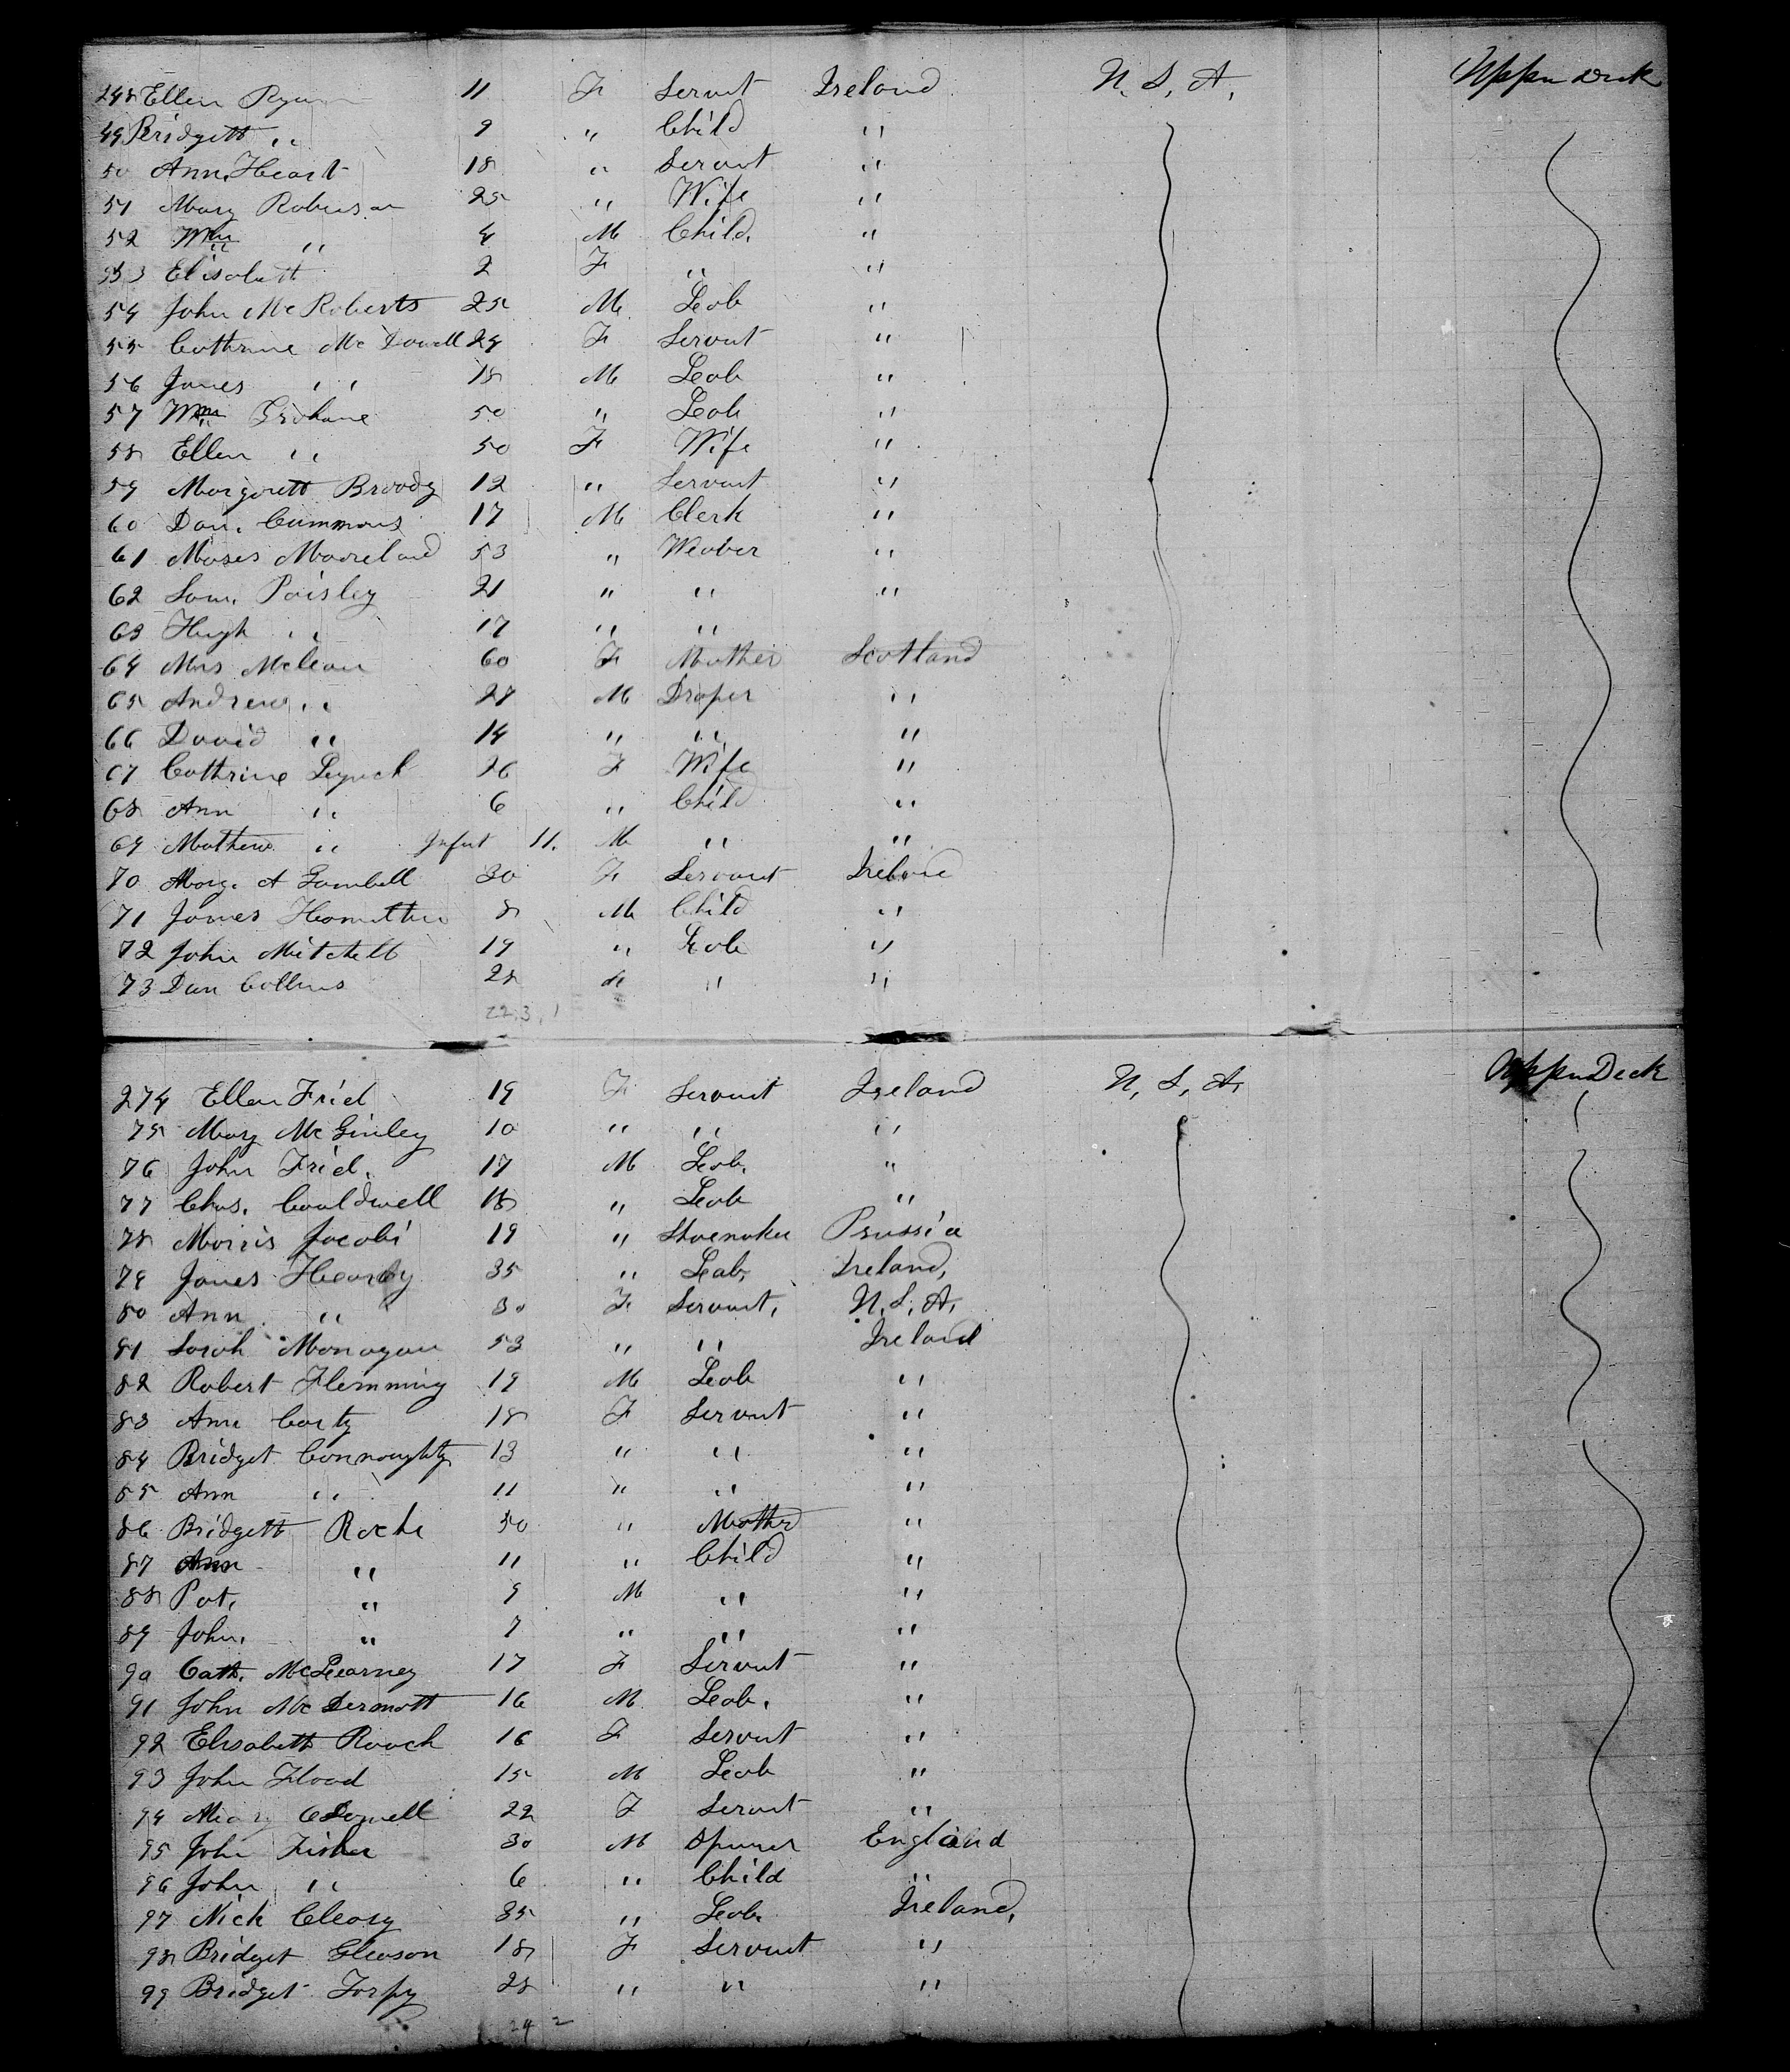 248 Ellen Ryan 11 F Servnt Ireland U. S. A. Upper Deck
49 Bridgett " 9 " Child "
50 Ann Heart 18 " Servnt "
51 Mary Robinson 25 " Wife "
52 Wm " 4 M Child. "
253 Elisabett 2 F " "
54 John McRoberts 25 M Lab "
55 Cathrine Mc Dowell 24 F Servnt "
56 James " 18 M Lab "
57 Wm Grahame 50 " Lab "
58 Ellen " 50 F Wife "
59 Margarett Broody 12 " Servant "
60 Dan. Cummons 17 M Clerk "
61 Moses Mooreland 53 " Weaver "
62 Sam. Paisley 21 " " "
63 Hugh " 17 " "
64 Mrs Mclean 60 F Mother Scotland
65 Andrew " 28 M Draper "
66 David " 14 " " "
67 Cathrine Lynch 26 F Wife "
68 Ann " 6 " Child "
69 Mathew " Infnt 11. M " "
70 Marg. A Gambell 30 F Servant Ireland
71 James Hamilton 8 M Child "
72 John Mitchell 19 " Lab "
73 Dan Collins 28 " "
22.3.1
274 Ellen Friel 19 F Servant Ireland U. S. A. Upper Deck
75 Mary Mc Ginley 10 " " "
76 John Friel. 17 M Lab. "
77 Chas. Cauldwell 18 " Lab "
78 Morris Jacobi 19 " Shoemaker Prussia
79 James Hearty 35 " Lab. Ireland,
80 Ann " 30 F Servant, U. S. A.
81 Sarah Monagan 53 " " Ireland
82 Robert Flemming 19 M Lab "
83 Ann Carty 18 F Servant "
84 Bridget Connaughty 13 " " "
85 Ann " 11 " " "
86 Bridgett Roche 50 " Mother "
87 Ann " 11 " Child "
88 Pat. " 9 M " "
89 John. " 7 " " "
90 Cath. McKearney 17 F Servant "
91 John Mc Dermott 16 M Lab. "
92 Elisabeth Roach 16 F Servnt "
93 John Flood 15 M Lab "
94 Mary ODonnell 22 F Servnt "
95 John Fisher 30 M Spinner England
96 John " 6 " Child "
97 Nick Cleary 35 " Lab. Ireland,
98 Bridget Gleason 18 F Servant "
99 Bridget Torpy 28 " " "
24 2